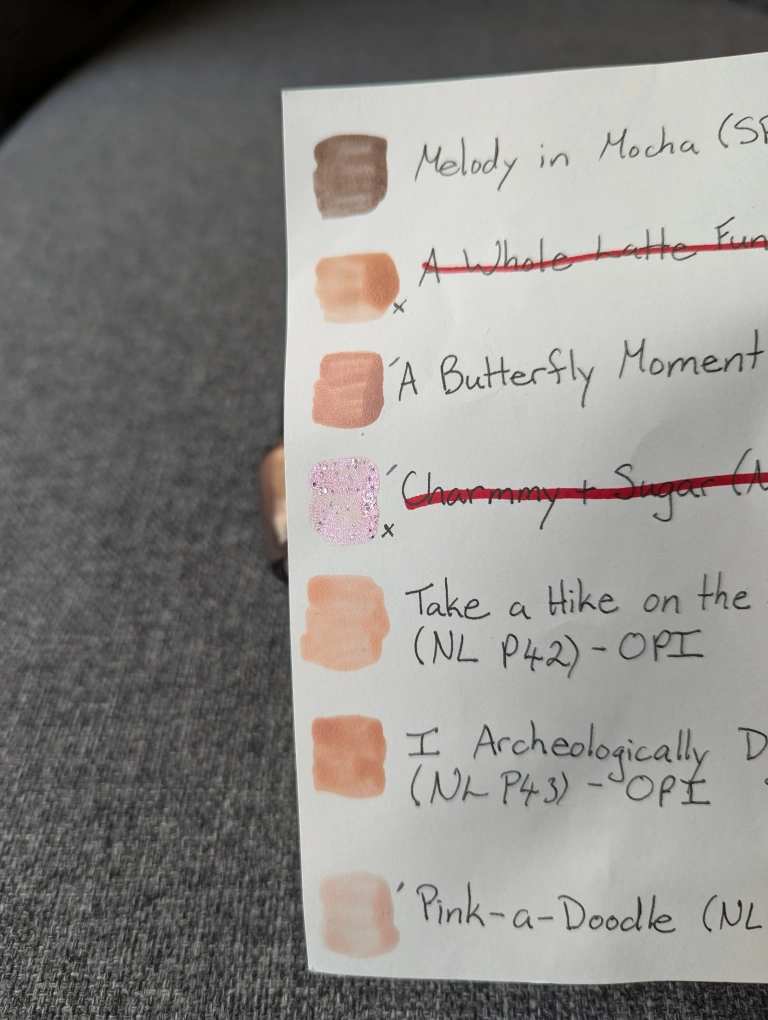 Melody in Mocha (SF
A Whole Latte Fun
x
A Butterfly Moment
Charmmy + Sugar (N
x
Take a Hike on the
(NL P42) - OPI
I Archeologically D
(NL P43) - OPI
Pink-a-Doodle (NL